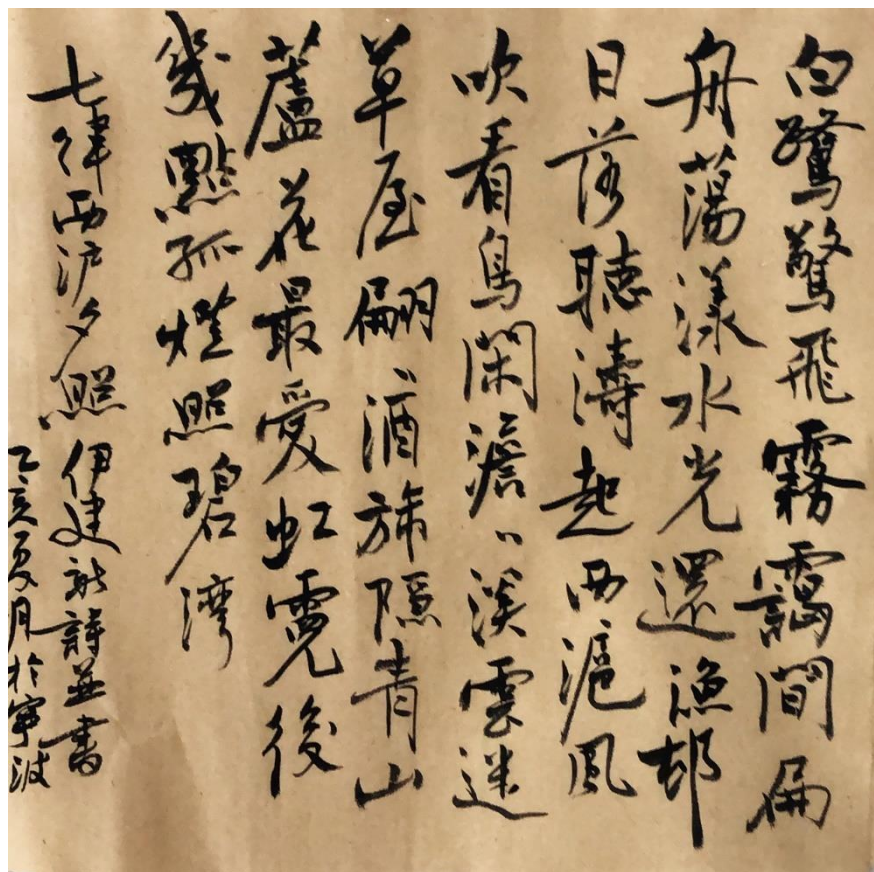 白鷺驚飛霧靄間扁
舟蕩漾水光還漁邨
日落聽濤起西滬風
吹看鳥閑澹〻溪雲迷
草屋翩〻酒旆隱青山
蘆花最愛虹霓後
幾點孤燈照碧灣
七律西沪夕照 伊建新詩並書
乙亥夏月於寧波